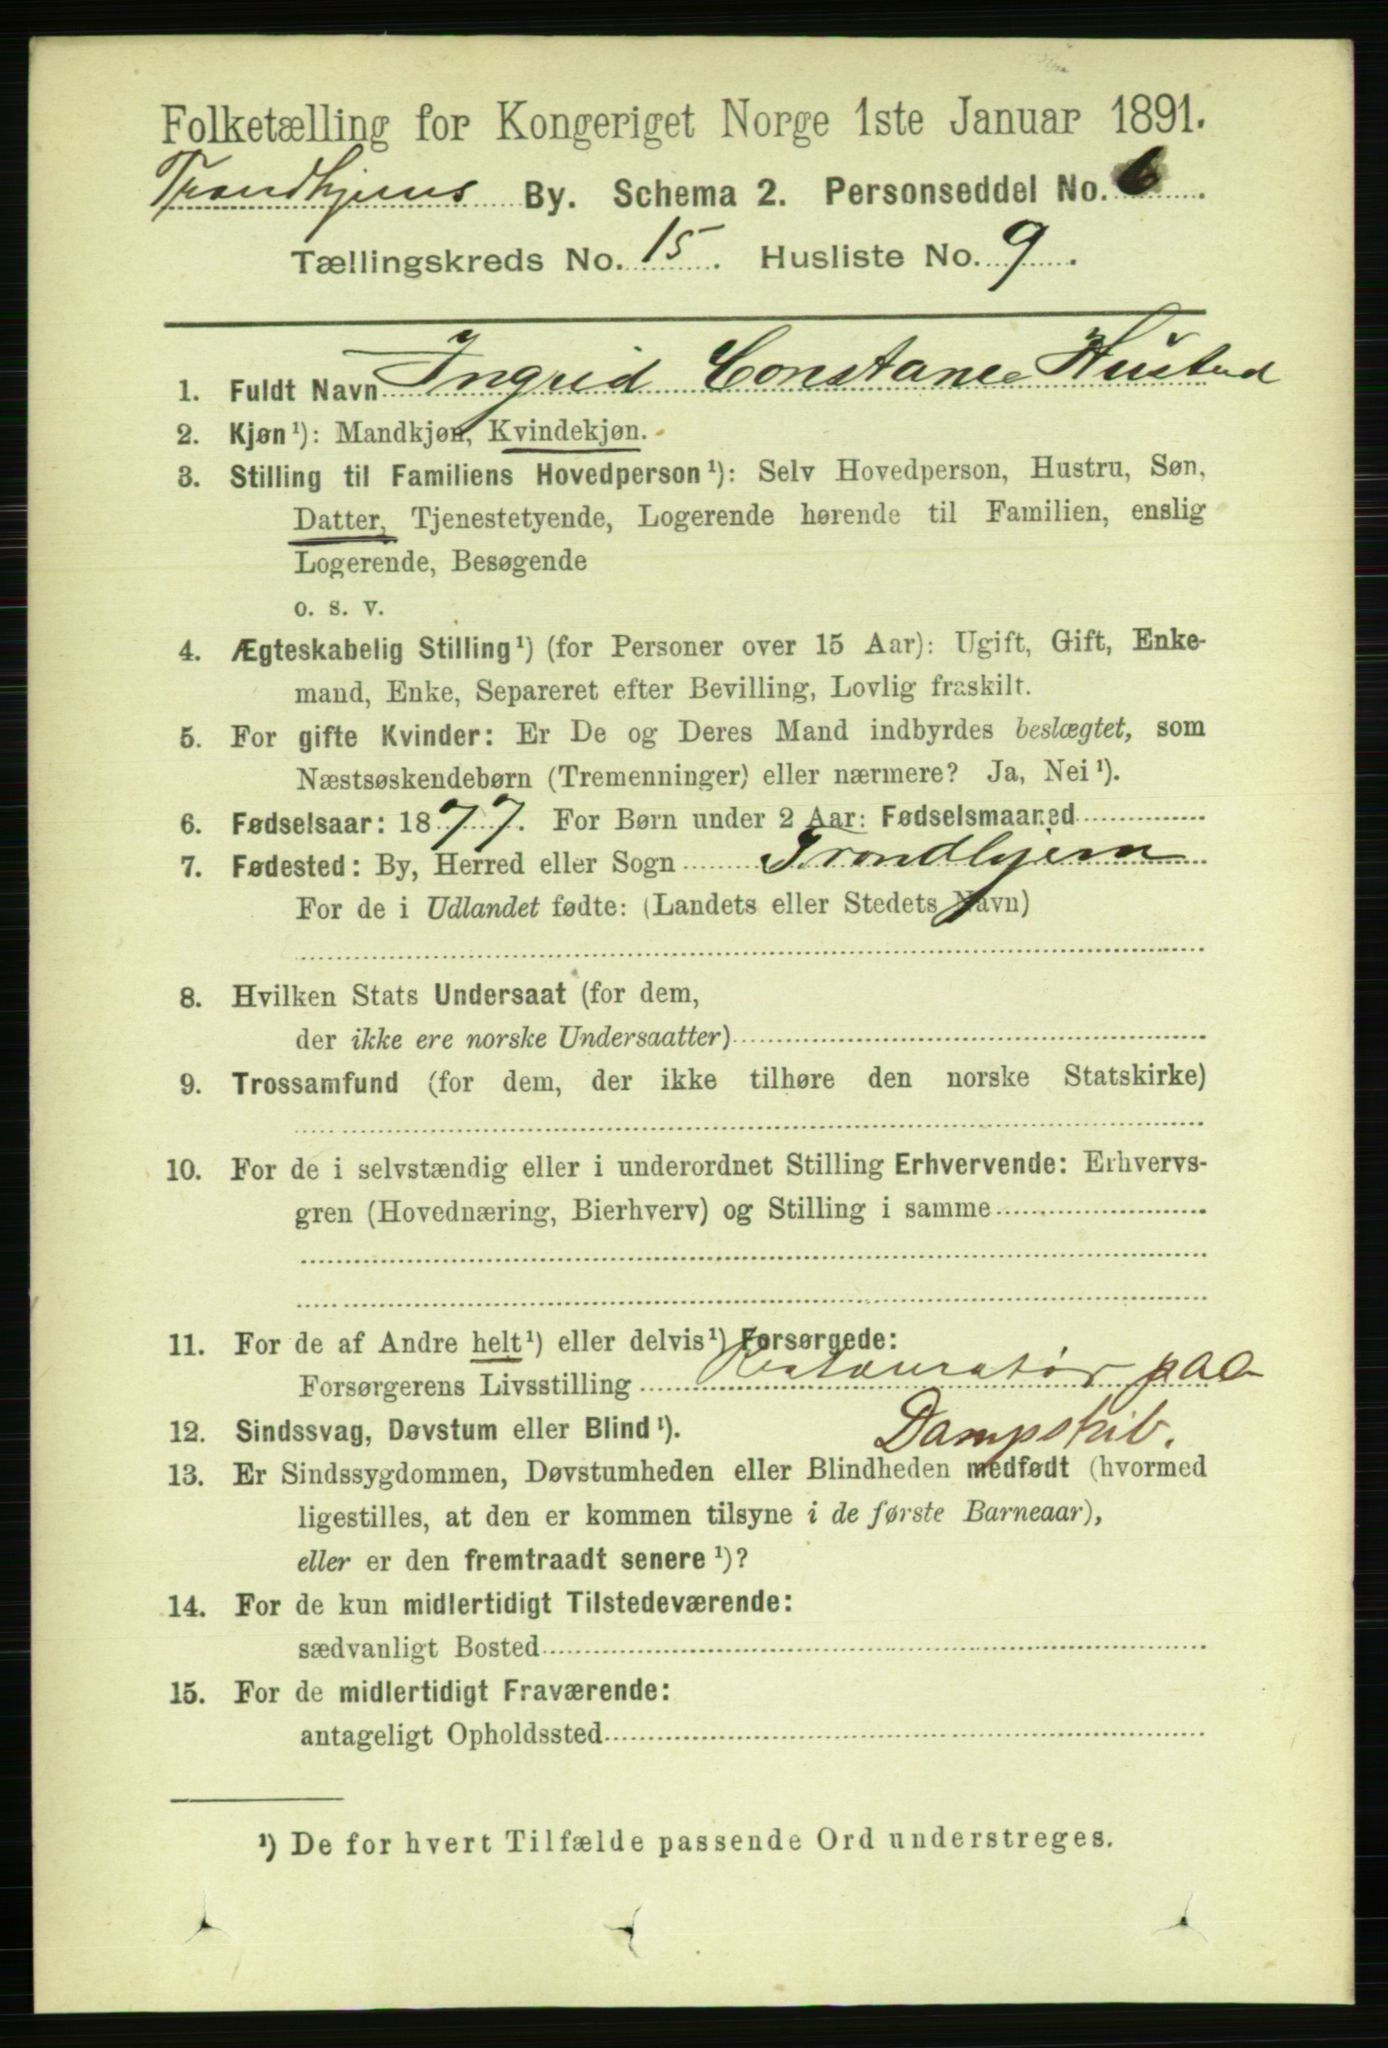 Folketælling for Kongeriget Norge 1ste Januar 1891.
Trondhjems By. Schema 2. Personseddel No. 6.
Tællingskreds No. 15. Husliste No. 9.
1. Fuldt Navn Ingrid Constance Husted
2. Kjøn¹): Mandkjøn, Kvindekjøn.
3. Stilling til Familiens Hovedperson¹): Selv Hovedperson, Hustru, Søn,
Datter, Tjenestetyende, Logerende hørende til Familien, enslig
Logerende, Besøgende
o. s. v.
4. Ægteskabelig Stilling¹) (for Personer over 15 Aar): Ugift, Gift, Enke-
mand, Enke, Separeret efter Bevilling, Lovlig fraskilt.
5. For gifte Kvinder: Er De og Deres Mand indbyrdes beslægtet, som
Næstsøskendebørn (Tremenninger) eller nærmere? Ja, Nei¹).
6. Fødselsaar: 1877. For Børn under 2 Aar: Fødselsmaaned
7. Fødested: By, Herred eller Sogn Trondhjem
For de i Udlandet fødte: (Landets eller Stedets Navn)
8. Hvilken Stats Undersaat (for dem,
der ikke ere norske Undersaatter)
9. Trossamfund (for dem, der ikke tilhøre den norske Statskirke)
10. For de i selvstændig eller i underordnet Stilling Erhvervende: Erhvervs-
gren (Hovednæring, Bierhverv) og Stilling i samme
11. For de af Andre helt¹) eller delvis¹) Forsørgede:
Forsørgerens Livsstilling Restauratør paa
Dampskib.
12. Sindssvag, Døvstum eller Blind¹).
13. Er Sindssygdommen, Døvstumheden eller Blindheden medfødt (hvormed
ligestilles, at den er kommen tilsyne i de første Barneaar),
eller er den fremtraadt senere¹)?
14. For de kun midlertidigt Tilstedeværende:
sædvanligt Bosted
15. For de midlertidigt Fraværende:
antageligt Opholdssted
¹) De for hvert Tilfælde passende Ord understreges.